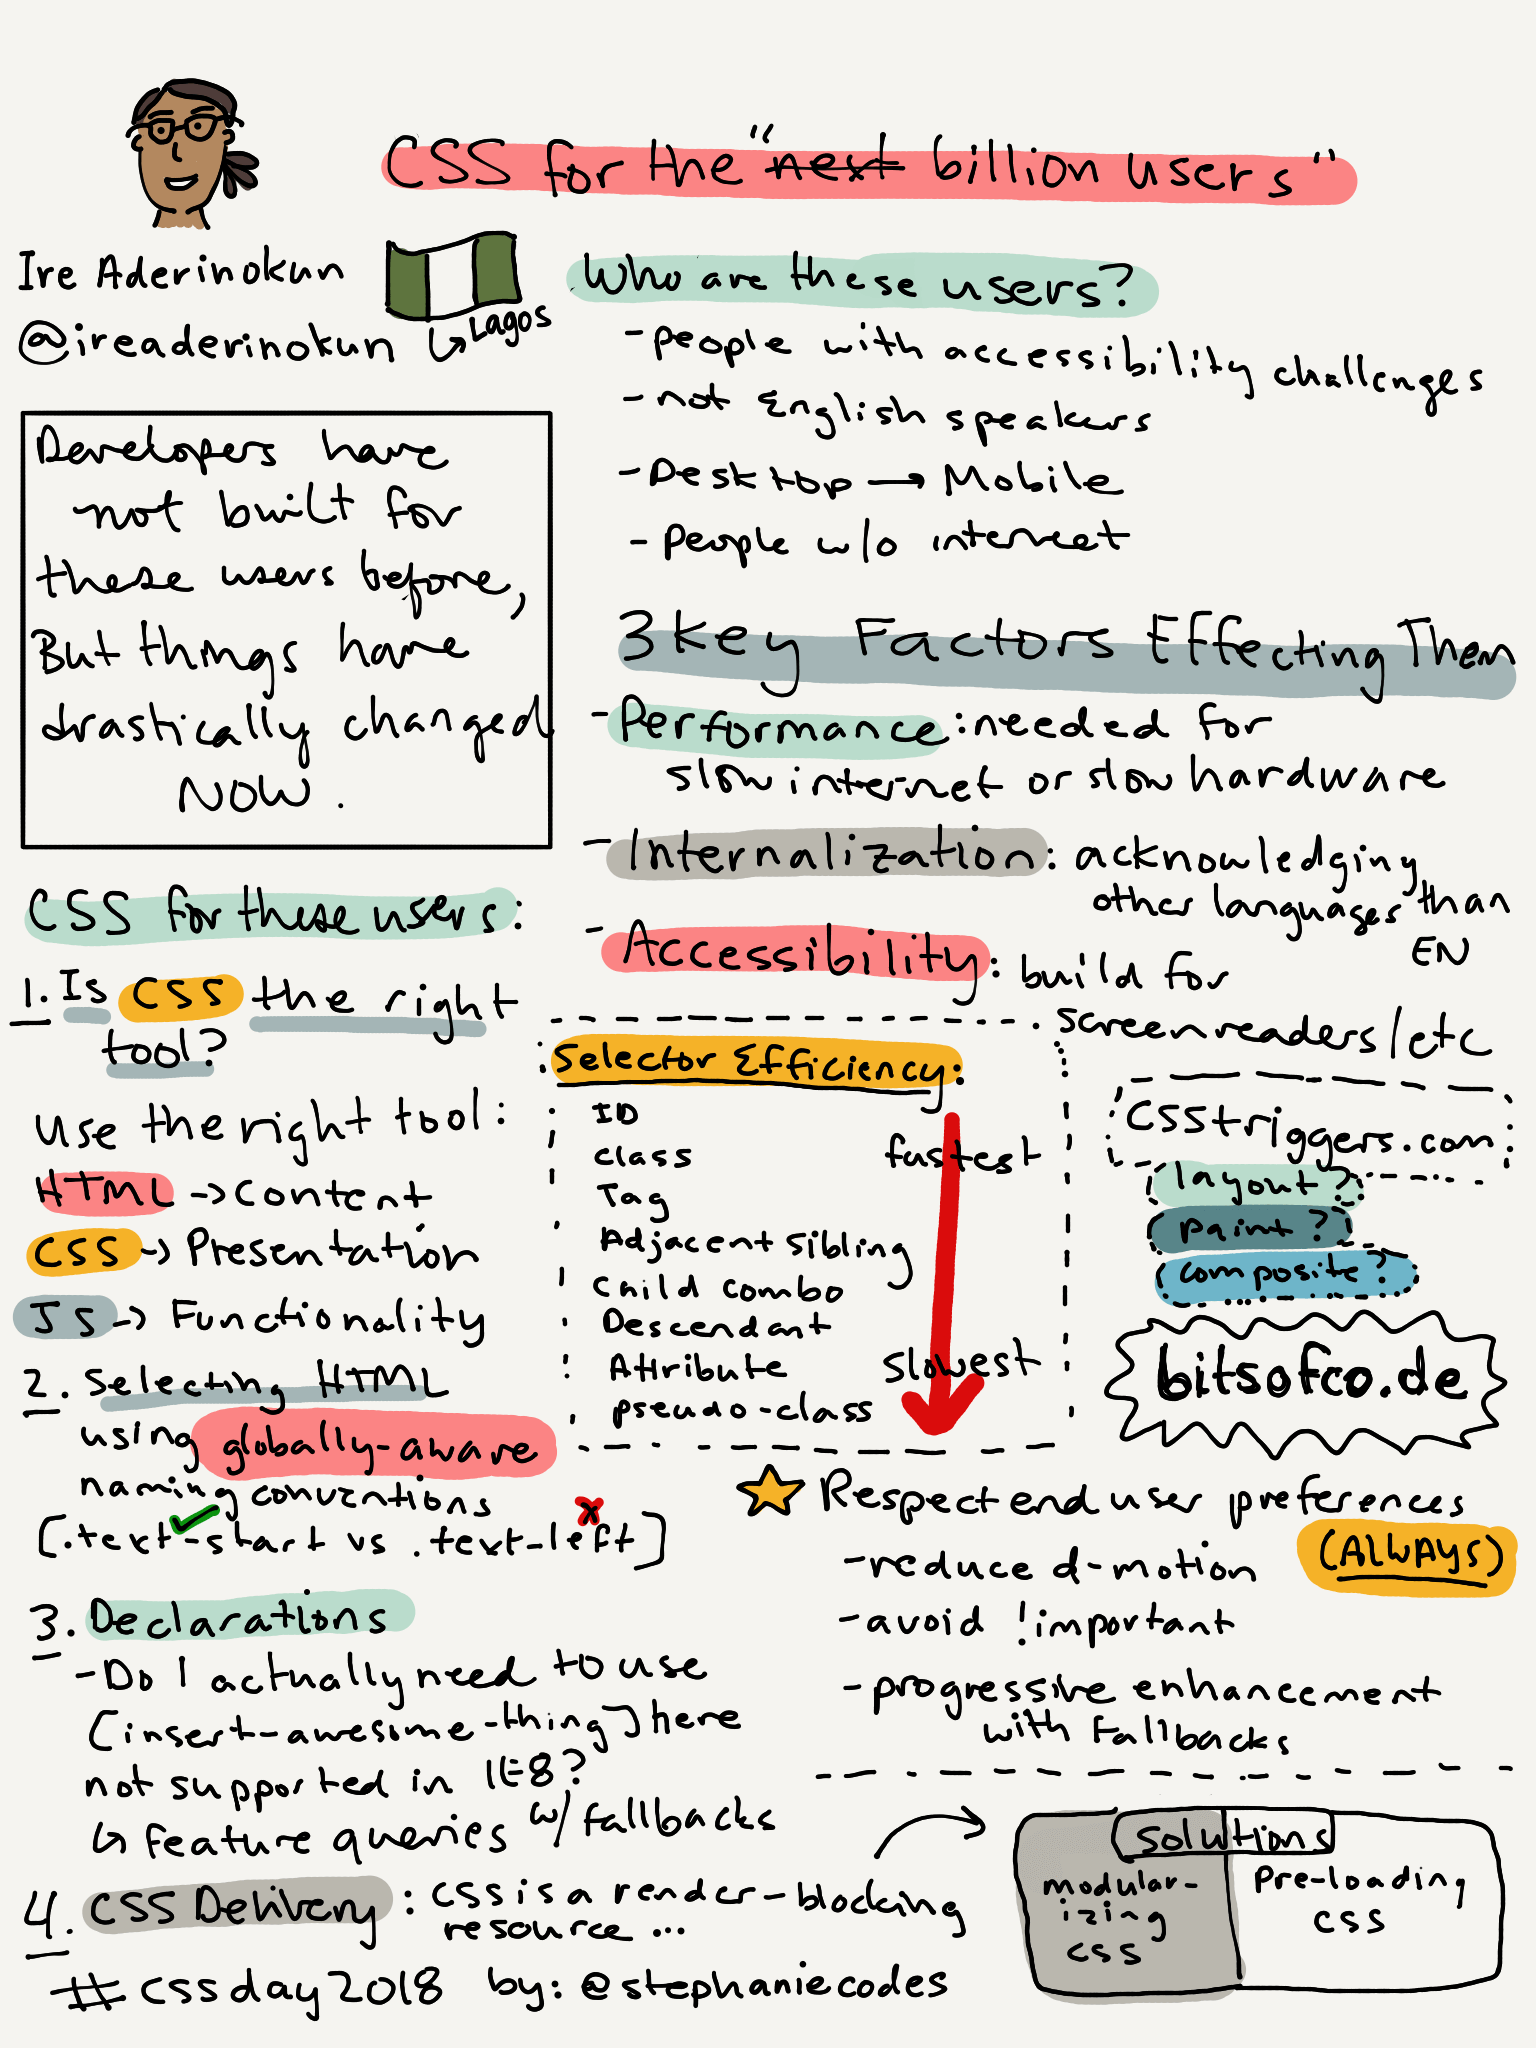 CSS for the "next billion users"
Ire Aderinokun
@ireaderinokun
Lagos
Developers have
not built for
these users before,
But things have
drastically changed
NOW.
Who are these users?
- people with accessibility challenges
- not English speakers
- Desktop → Mobile
- People w/o internet
3 Key Factors Effecting Them
- Performance: needed for
slow internet or slow hardware
- Internalization: acknowledging
other languages than
EN
- Accessibility: build for
screenreaders/etc
CSS for these users:
1. Is CSS the right
tool?
Use the right tool:
HTML -> Content
CSS -> Presentation
JS -> Functionality
2. Selecting HTML
using globally-aware
naming conventions
[.text-start vs .text-left]
3. Declarations
- Do I actually need to use
[insert-awesome-thing] here
not supported in IE8?
↳ feature queries w/ fallbacks
4. CSS Delivery: CSS is a render-blocking
resource...
Selector Efficiency:
ID
class
fastest
Tag
Adjacent Sibling
Child combo
Descendant
Attribute
slowest
pseudo-class
CSStriggers.com
layout?
paint?
composite?
bitsofco.de
Respect end user preferences
(ALWAYS)
- reduced-motion
- avoid !important
- progressive enhancement
with Fallbacks
solutions
modular-
izing
css
Pre-loading
CSS
#cssday2018 by: @stephaniecodes